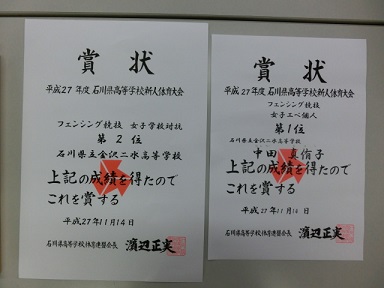 賞状
平成27年度 石川県高等学校新人体育大会
フェンシング競技 女子学校対抗
第2位
石川県立金沢二水高等学校
上記の成績を得たので
これを賞する
平成27年11月14日
石川県高等学校体育連盟会長 濵辺正実
賞状
平成27年度 石川県高等学校新人体育大会
フェンシング競技
女子エペ個人
第1位
石川県立金沢二水高等学校
中田 真侑子
上記の成績を得たので
これを賞する
平成27年11月14日
石川県高等学校体育連盟会長 濵辺正実